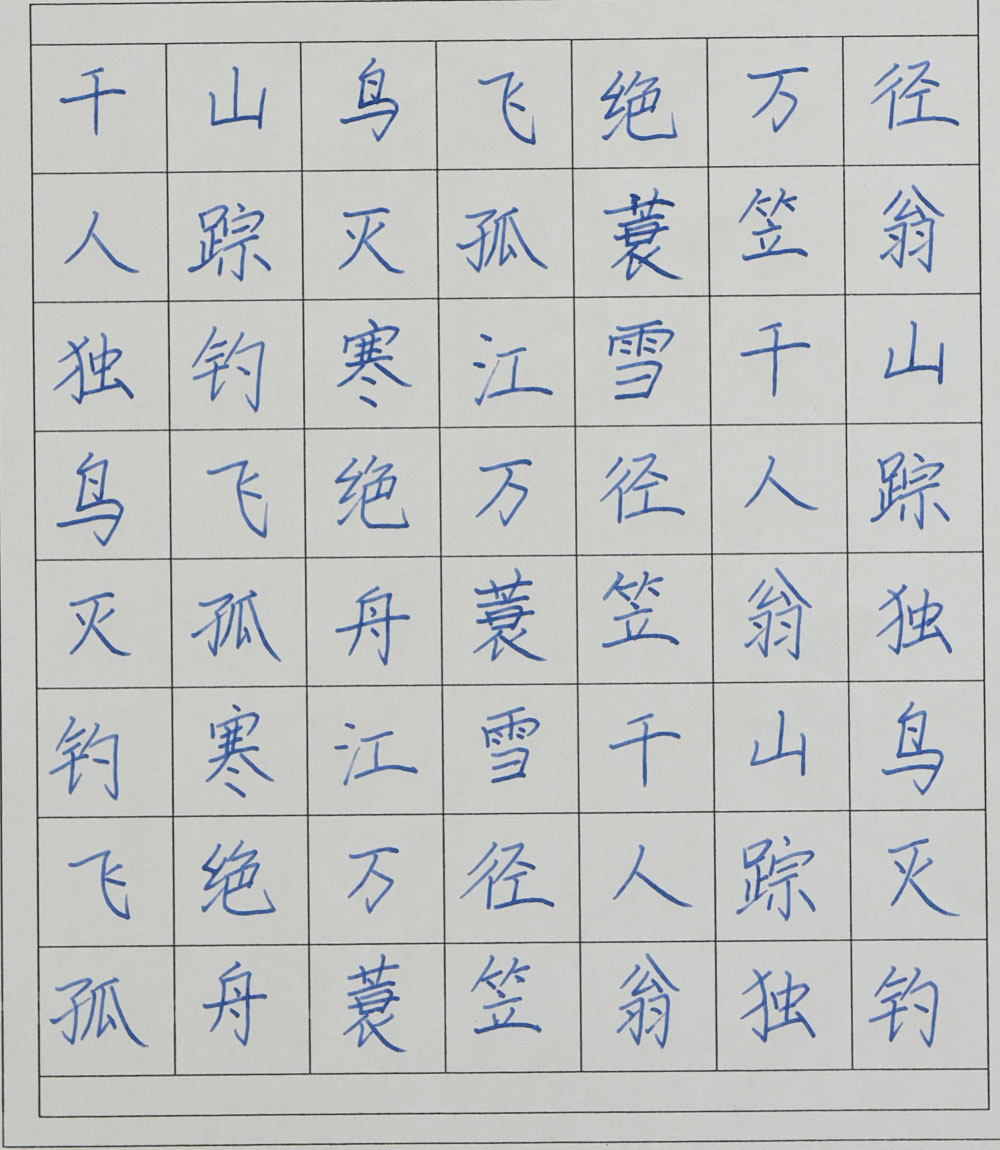 千山鸟飞绝万径
人踪灭孤蓑笠翁
独钓寒江雪千山
鸟飞绝万径人踪
灭孤舟蓑笠翁独
钓寒江雪千山鸟
飞绝万径人踪灭
孤舟蓑笠翁独钓